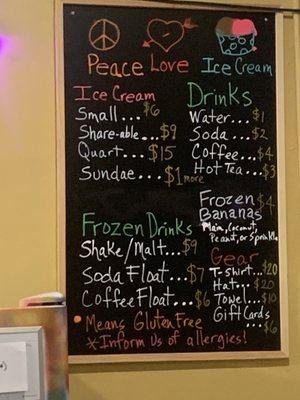 Peace Love Ice Cream
Ice Cream
Small... $6
Share-able... $9
Quart... $15
Sundae.... $1 more
Drinks
Water... $1
Soda... $2
Coffee... $4
Hot Tea... $3
Frozen Bananas $4
Plain, Coconut,
Peanut, or Sprinkle
Frozen Drinks
Shake/Malt... $9
Soda Float... $7
Coffee Float... $6
Gear
T-Shirt... $20
Hat... $20
Towel... $10
Gift Cards
... $6
Means Gluten Free
*Inform Us of allergies!